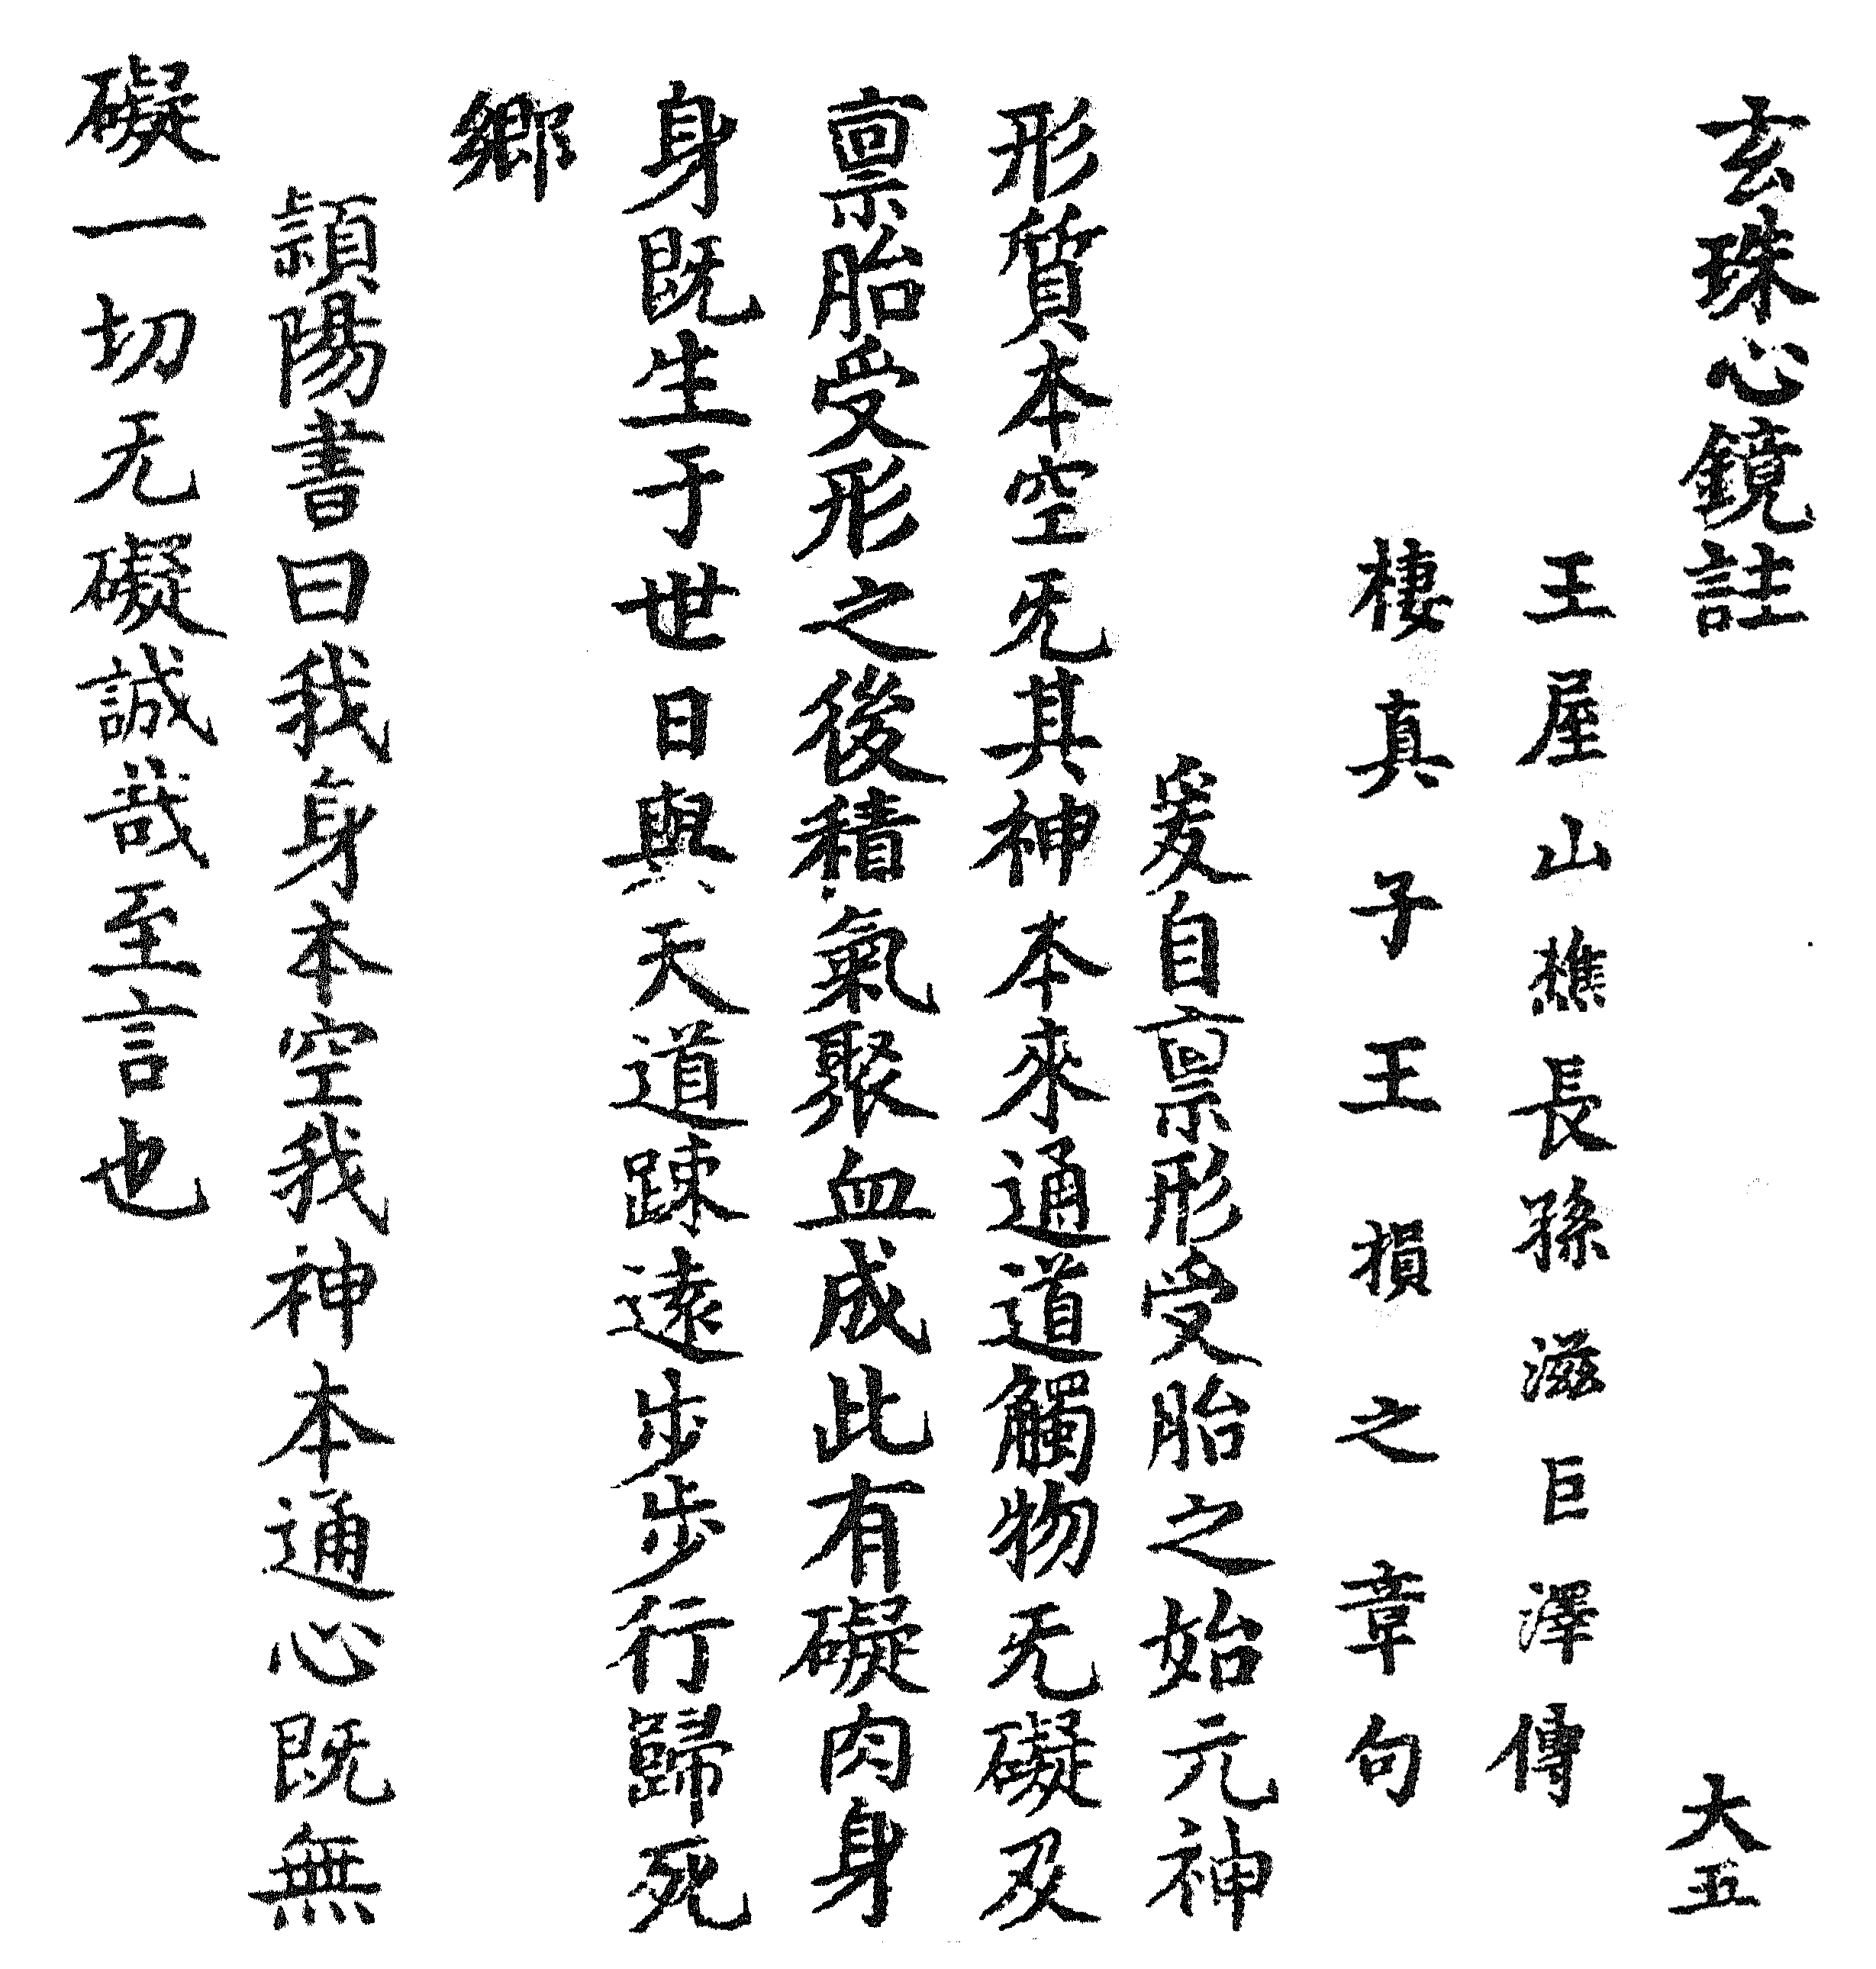 玄珠心鏡註　大五
王屋山樵長孫滋巨澤傳
棲真子王損之章句
爰自禀形受胎之始元神
形質本空旡其神本來通道觸物旡礙及
禀胎受形之後積氣聚血成此有礙肉身
身既生于世日與天道踈遠步步行歸死
鄉
頴陽書曰我身本空我神本通心既無
礙一切无礙誠哉至言也